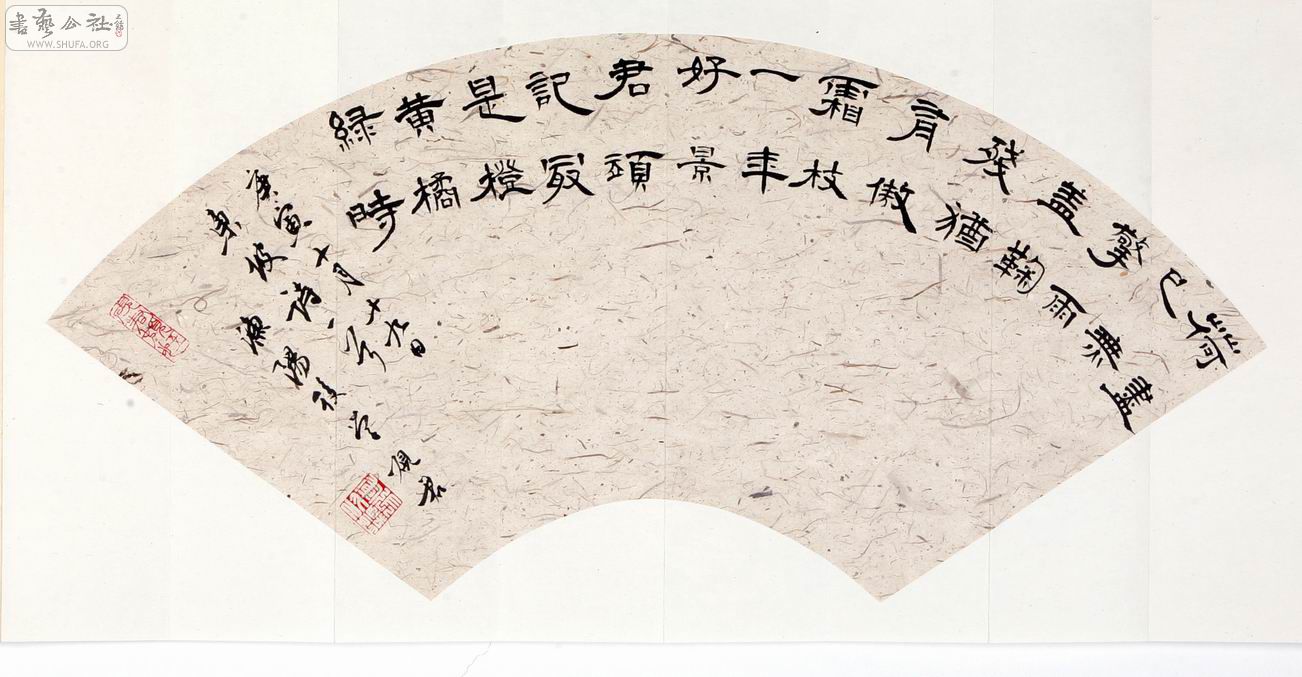 書藝公社
WWW.SHUFA.ORG
荷盡
已無
擎雨
盖鞠
殘猶
有傲
霜枝
一年
好景
君須
記冣
是橙
黄橘
緑時
庚寅十月十九日
東坡诗一首
陽